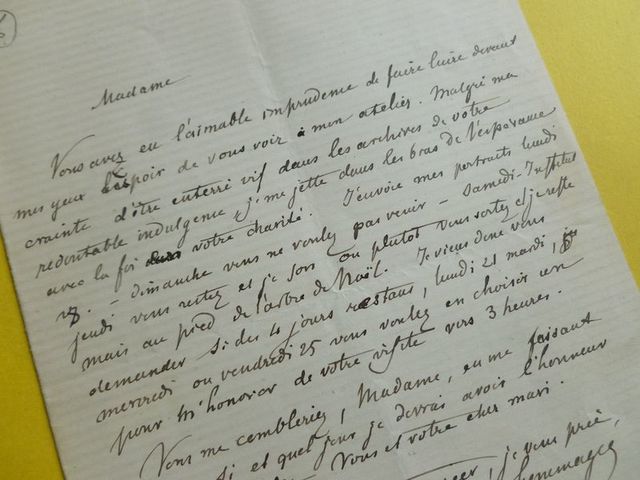 Madame
Vous avez eu l'aimable imprudence de faire luire devant
mes yeux l'espoir de vous voir à mon atelier. Malgré ma
crainte d'être enterré vif dans les archives de votre
redoutable indulgence, je me jette dans les bras de l'espérance
avec la foi dans votre charité. J'envoie mes portraits lundi
- Dimanche vous ne voulez pas venir - Samedi-Institut
jeudi vous restez et je sors ou plutot vous sortez et je reste
mais au pied de l'arbre de Noël. Je viens donc vous
demander si des 4 jours restans, lundi 21 mardi,
mercredi ou vendredi 25 vous voulez en choisir un
pour m'honorer de votre visite vers 3 heures.
Vous me combleriez, Madame, en me faisant
si et quel jour je devrai avoir l'honneur
Vous et votre cher mari.
, je vous prie,
hommages